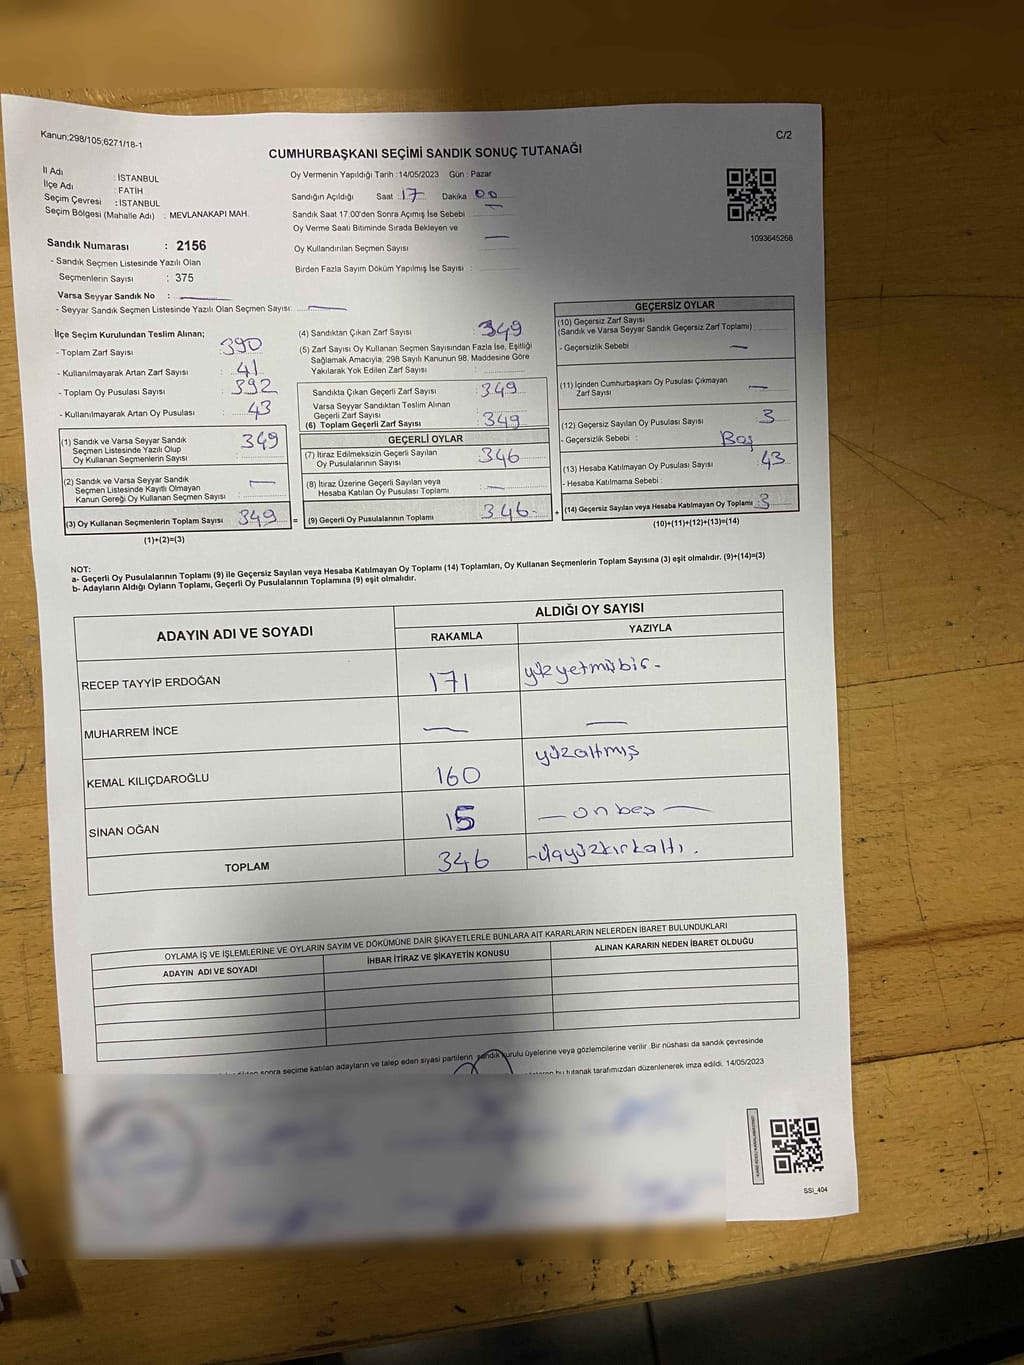 Kanun:298/105,6271/18-1
C/2
CUMHURBAŞKANI SEÇİMİ SANDIK SONUÇ TUTANAĞI
İl Adı : İSTANBUL
İlçe Adı : FATİH
Seçim Çevresi : İSTANBUL
Seçim Bölgesi (Mahalle Adı) : MEVLANAKAPI MAH.
Sandık Numarası : 2156
- Sandık Seçmen Listesinde Yazılı Olan
Seçmenlerin Sayısı : 375
Varsa Seyyar Sandık No :
- Seyyar Sandık Seçmen Listesinde Yazılı Olan Seçmen Sayısı:
Oy Vermenin Yapıldığı Tarih :14/05/2023 Gün : Pazar
Sandığın Açıldığı Saat 17 Dakika 00
Sandık Saat 17.00'den Sonra Açımış İse Sebebi
Oy Verme Saati Bitiminde Sırada Bekleyen ve
Oy Kullandırılan Seçmen Sayısı
Birden Fazla Sayım Döküm Yapılmış İse Sayısı :
1093645268
İlçe Seçim Kurulundan Teslim Alınan;
- Toplam Zarf Sayısı : 390
- Kullanılmayarak Artan Zarf Sayısı : 41
- Toplam Oy Pusulası Sayısı : 392
- Kullanılmayarak Artan Oy Pusulası : 43
(1) Sandık ve Varsa Seyyar Sandık
Seçmen Listesinde Yazılı Olup
Oy Kullanan Seçmenlerin Sayısı 349
(2) Sandık ve Varsa Seyyar Sandık
Seçmen Listesinde Kayıtlı Olmayan
Kanun Gereği Oy Kullanan Seçmen Sayısı —
(3) Oy Kullanan Seçmenlerin Toplam Sayısı 349 =
(1)+(2)=(3)
(4) Sandıktan Çıkan Zarf Sayısı : 349
(5) Zarf Sayısı Oy Kullanan Seçmen Sayısından Fazla İse, Eşitliği
Sağlamak Amacıyla, 298 Sayılı Kanunun 98. Maddesine Göre
Yakılarak Yok Edilen Zarf Sayısı :
Sandıkta Çıkan Geçerli Zarf Sayısı : 349
Varsa Seyyar Sandıktan Teslim Alınan
Geçerli Zarf Sayısı :
(6) Toplam Geçerli Zarf Sayısı : 349
GEÇERLİ OYLAR
(7) İtiraz Edilmeksizin Geçerli Sayılan
Oy Pusulalarının Sayısı : 346
(8) İtiraz Üzerine Geçerli Sayılan veya
Hesaba Katılan Oy Pusulası Toplamı : —
(9) Geçerli Oy Pusulalarının Toplamı 346 +
GEÇERSİZ OYLAR
(10) Geçersiz Zarf Sayısı
(Sandık ve Varsa Seyyar Sandık Geçersiz Zarf Toplamı)
- Geçersizlik Sebebi : —
(11) İçinden Cumhurbaşkanı Oy Pusulası Çıkmayan
Zarf Sayısı : —
(12) Geçersiz Sayılan Oy Pusulası Sayısı : 3
- Geçersizlik Sebebi : Boş
(13) Hesaba Katılmayan Oy Pusulası Sayısı : 43
- Hesaba Katılmama Sebebi :
(14) Geçersiz Sayılan veya Hesaba Katılmayan Oy Toplamı : 3
(10)+(11)+(12)+(13)=(14)
NOT:
a- Geçerli Oy Pusulalarının Toplamı (9) ile Geçersiz Sayılan veya Hesaba Katılmayan Oy Toplamı (14) Toplamları, Oy Kullanan Seçmenlerin Toplam Sayısına (3) eşit olmalıdır. (9)+(14)=(3)
b- Adayların Aldığı Oyların Toplamı, Geçerli Oy Pusulalarının Toplamına (9) eşit olmalıdır.
ADAYIN ADI VE SOYADI
ALDIĞI OY SAYISI
RAKAMLA YAZIYLA
RECEP TAYYİP ERDOĞAN 171 yüzyetmişbir-
MUHARREM İNCE — —
KEMAL KILIÇDAROĞLU 160 yüzaltmış
SİNAN OĞAN 15 — on beş —
TOPLAM 346 -üçyüzkırkaltı.
OYLAMA İŞ VE İŞLEMLERİNE VE OYLARIN SAYIM VE DÖKÜMÜNE DAİR ŞİKAYETLERLE BUNLARA AİT KARARLARIN NELERDEN İBARET BULUNDUKLARI
ADAYIN ADI VE SOYADI İHBAR İTİRAZ VE ŞİKAYETİN KONUSU ALINAN KARARIN NEDEN İBARET OLDUĞU
sonra seçime katılan adayların ve talep eden siyasi partilerin sandık kurulu üyelerine veya gözlemcilerine verilir. Bir nüshası da sandık çevresinde
bu tutanak tarafımızdan düzenlenerek imza edildi. 14/05/2023
SSİ_404